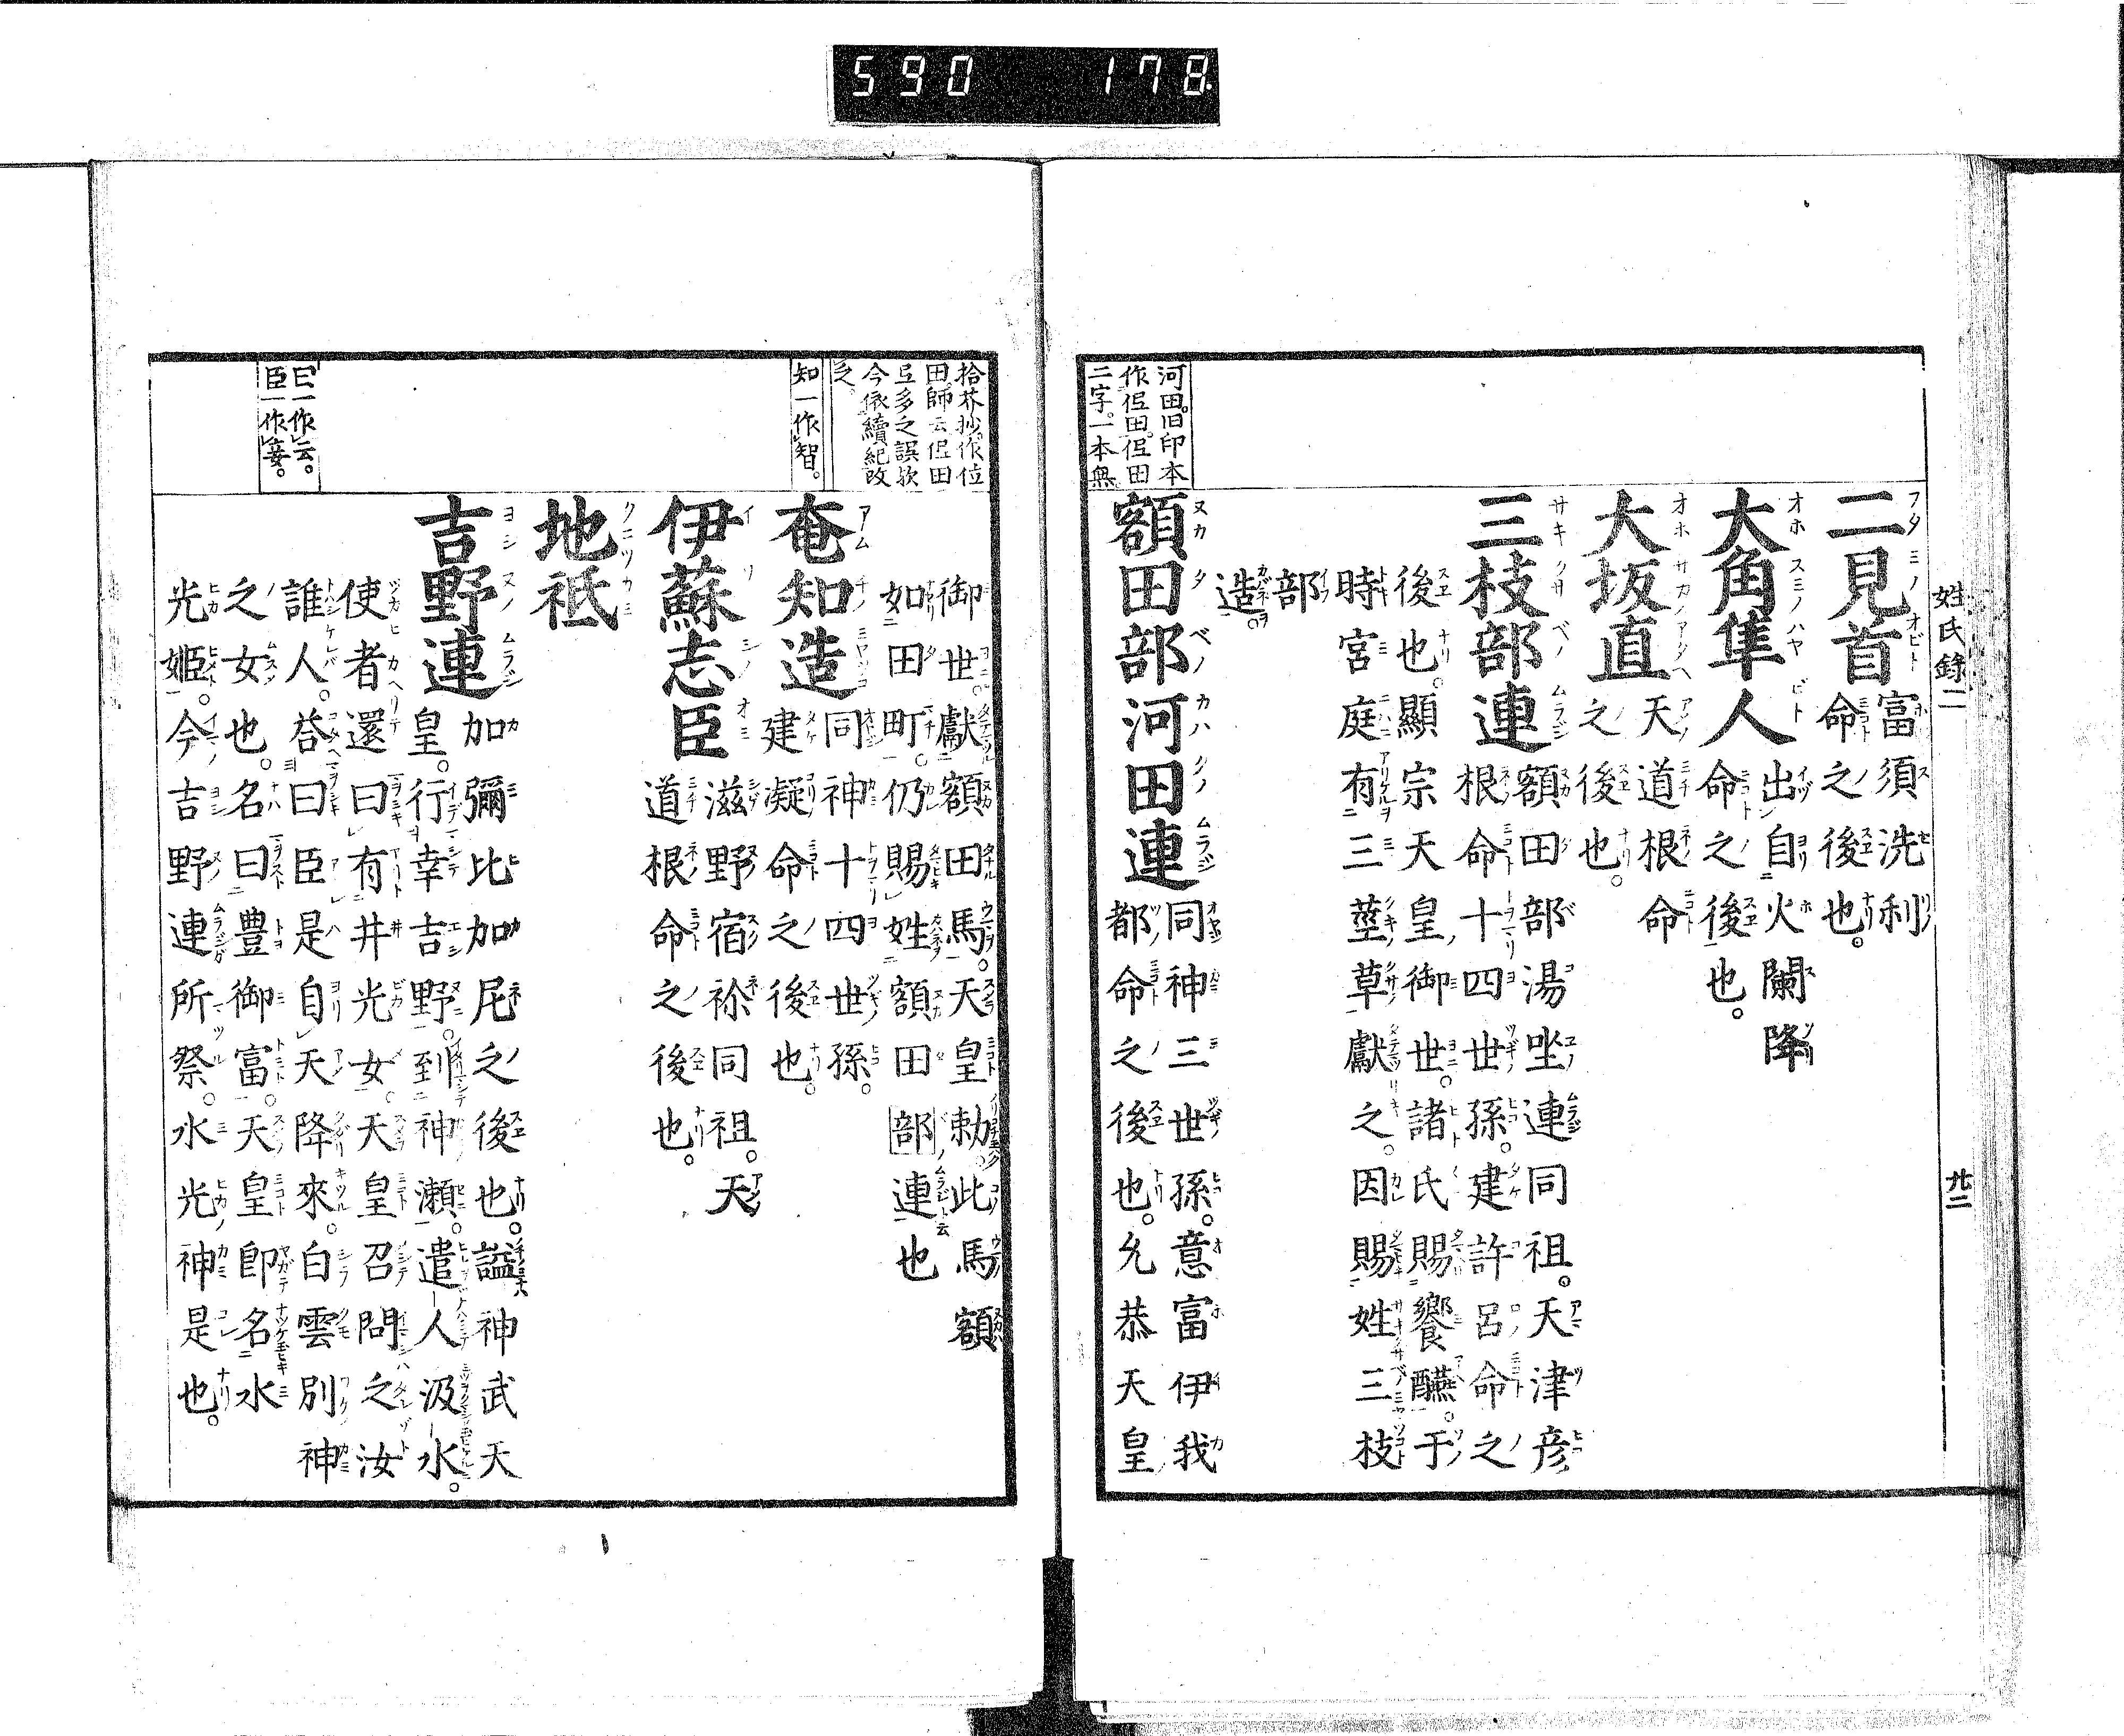 590 178
姓氏錄二
廿二
二見首
富須洗利
命之後也。
大角隼人
出自火闌降
命之後也。
大坂直
天道根命
之後也。
三枝部連
額田部湯坐連同祖。天津彦
根命十四世孫。建許呂命之
後也。顯宗天皇御世。諸氏賜饗醼。于
時宮庭有三莖草獻之。因賜姓三枝
部
造。
河田。旧印本
作佀田。佀田
二字。一本無
額田部河田連
同神三世孫。意富伊我
都命之後也。允恭天皇
拾芥抄。作位
田。師云佀田
豆多之誤歟
今依續紀改
之。
御世。獻額田馬。天皇勅。此馬額
如田町。仍賜姓額田部連也
知一作智。
奄知造
同神十四世孫。
建凝命之後也。
伊蘇志臣
滋野宿祢同祖。天
道根命之後也。
地祇
吉野連
加彌比加尼之後也。謚神武天
皇。行幸吉野。到神瀬。遣人汲水。
使者還曰有井光女。天皇召問之汝
曰一作云。
臣一作妾。
誰人。荅曰臣是自天降來。白雲別神
之女也。名曰豊御富。天皇卽名水
光姬。今吉野連所祭。水光神是也。